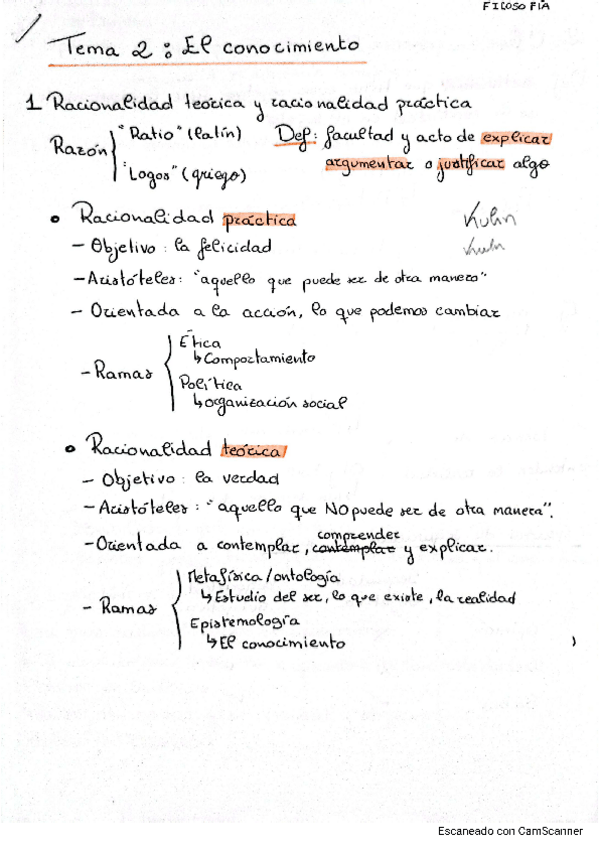 FILOSOFÍA
Tema 2: El conocimiento
1 Racionalidad teórica y racionalidad práctica
Razón
"Ratio" (latín)
"Logos" (griego)
Def: facultad y acto de explicar
argumentar o justificar algo
• Racionalidad práctica
Kuhn
Kuhn
- Objetivo: la felicidad
- Aristóteles: "aquello que puede ser de otra manera"
- Orientada a la acción, lo que podemos cambiar
- Ramas
Ética
↳ Comportamiento
Política
↳ organización social
• Racionalidad teórica
- Objetivo: la verdad
- Aristóteles: "aquello que NO puede ser de otra manera".
comprender
- Orientada a contemplar, contemplar y explicar.
- Ramas
Metafísica/ontología
↳ Estudio del ser, lo que existe, la realidad
Epistemología
↳ El conocimiento
Escaneado con CamScanner